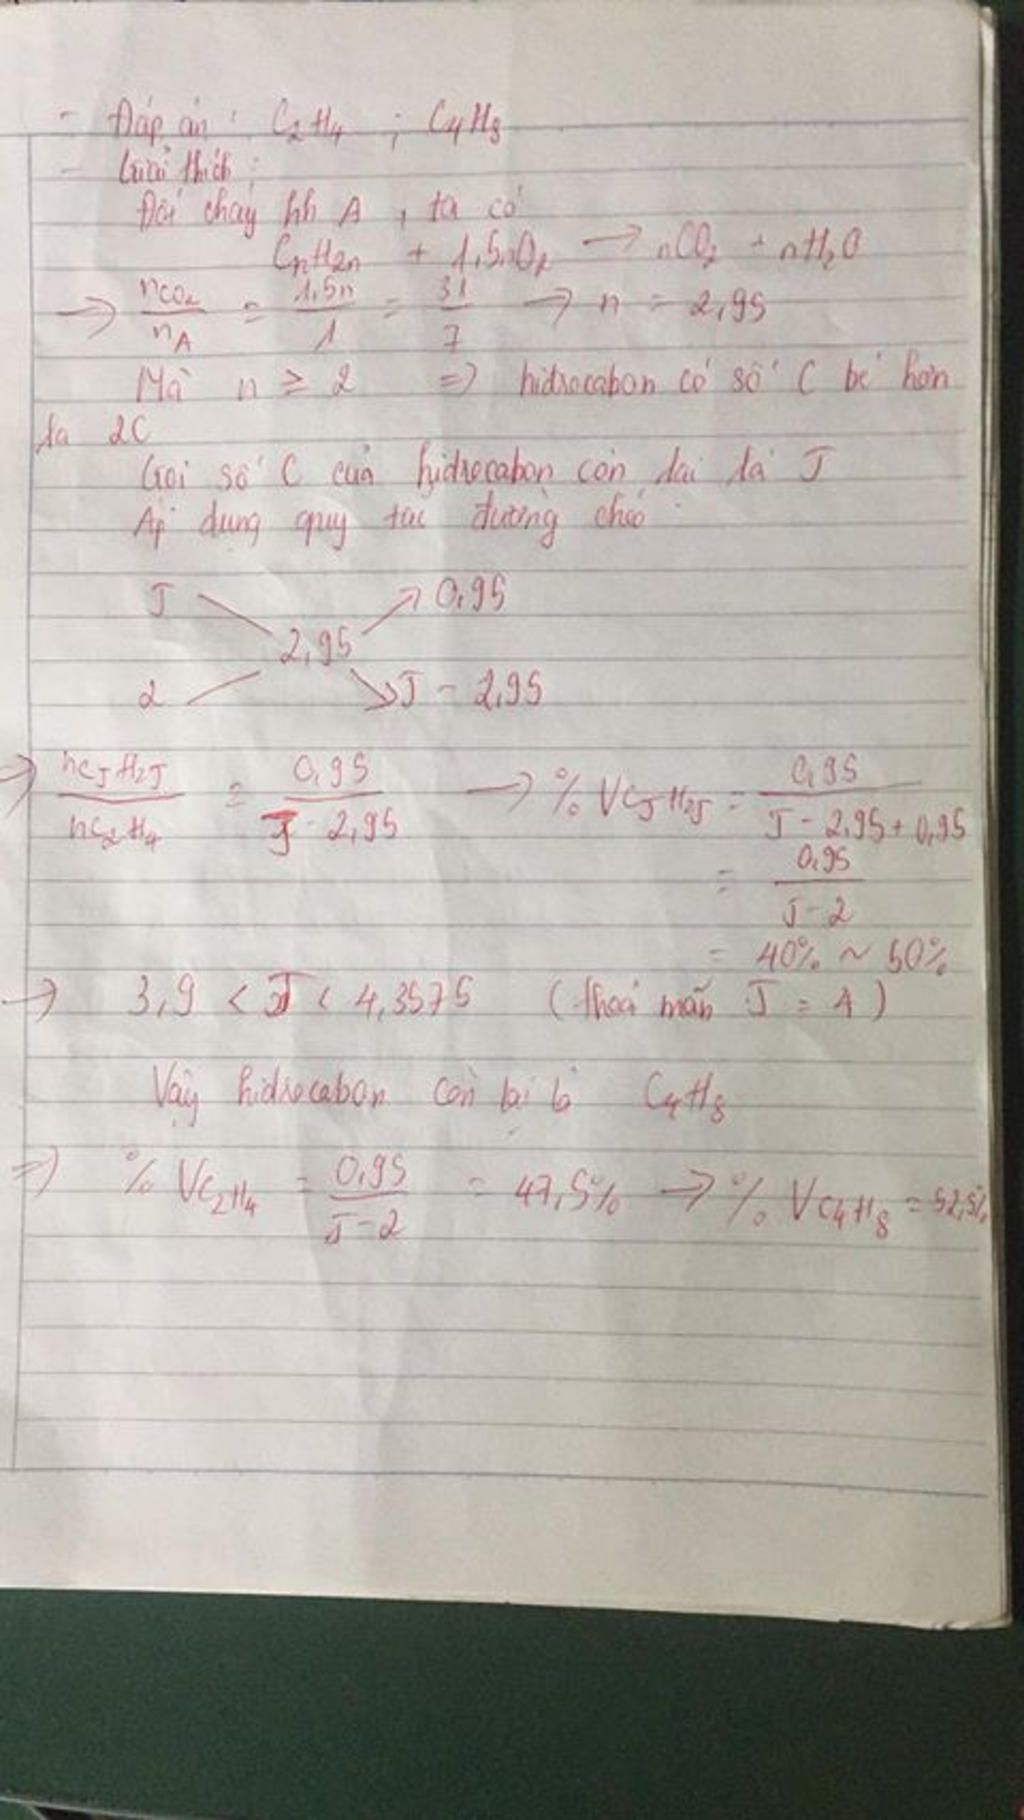 - Đáp án : C₂H₄ ; C₄H₈
- Giải thích :
Đốt cháy hh A , ta có
CnH2n + 1,5nO₂ → nCO₂ + nH₂O
→ nCO₂/nA = 1,5n/1 = 31/7 → n = 2,95
Mà n ≥ 2 => hidrocabon có số C bé hơn
là 2C
Gọi số C của hidrocabon còn lại là J
Áp dụng quy tắc đường chéo
J 0,95
2,95
2 J - 2,95
→ nCJH2J/nC₂H₄ = 0,95/J - 2,95 → % VCJH2J = 0,95/J - 2,95 + 0,95
= 0,95/J - 2
= 40% ~ 50%
→ 3,9 < J < 4,3575 (thoả mãn J = 4)
Vậy hidrocabon còn lại là C₄H₈
=> % VC₂H₄ = 0,95/J - 2 = 47,5% → % VC₄H₈ = 52,5%